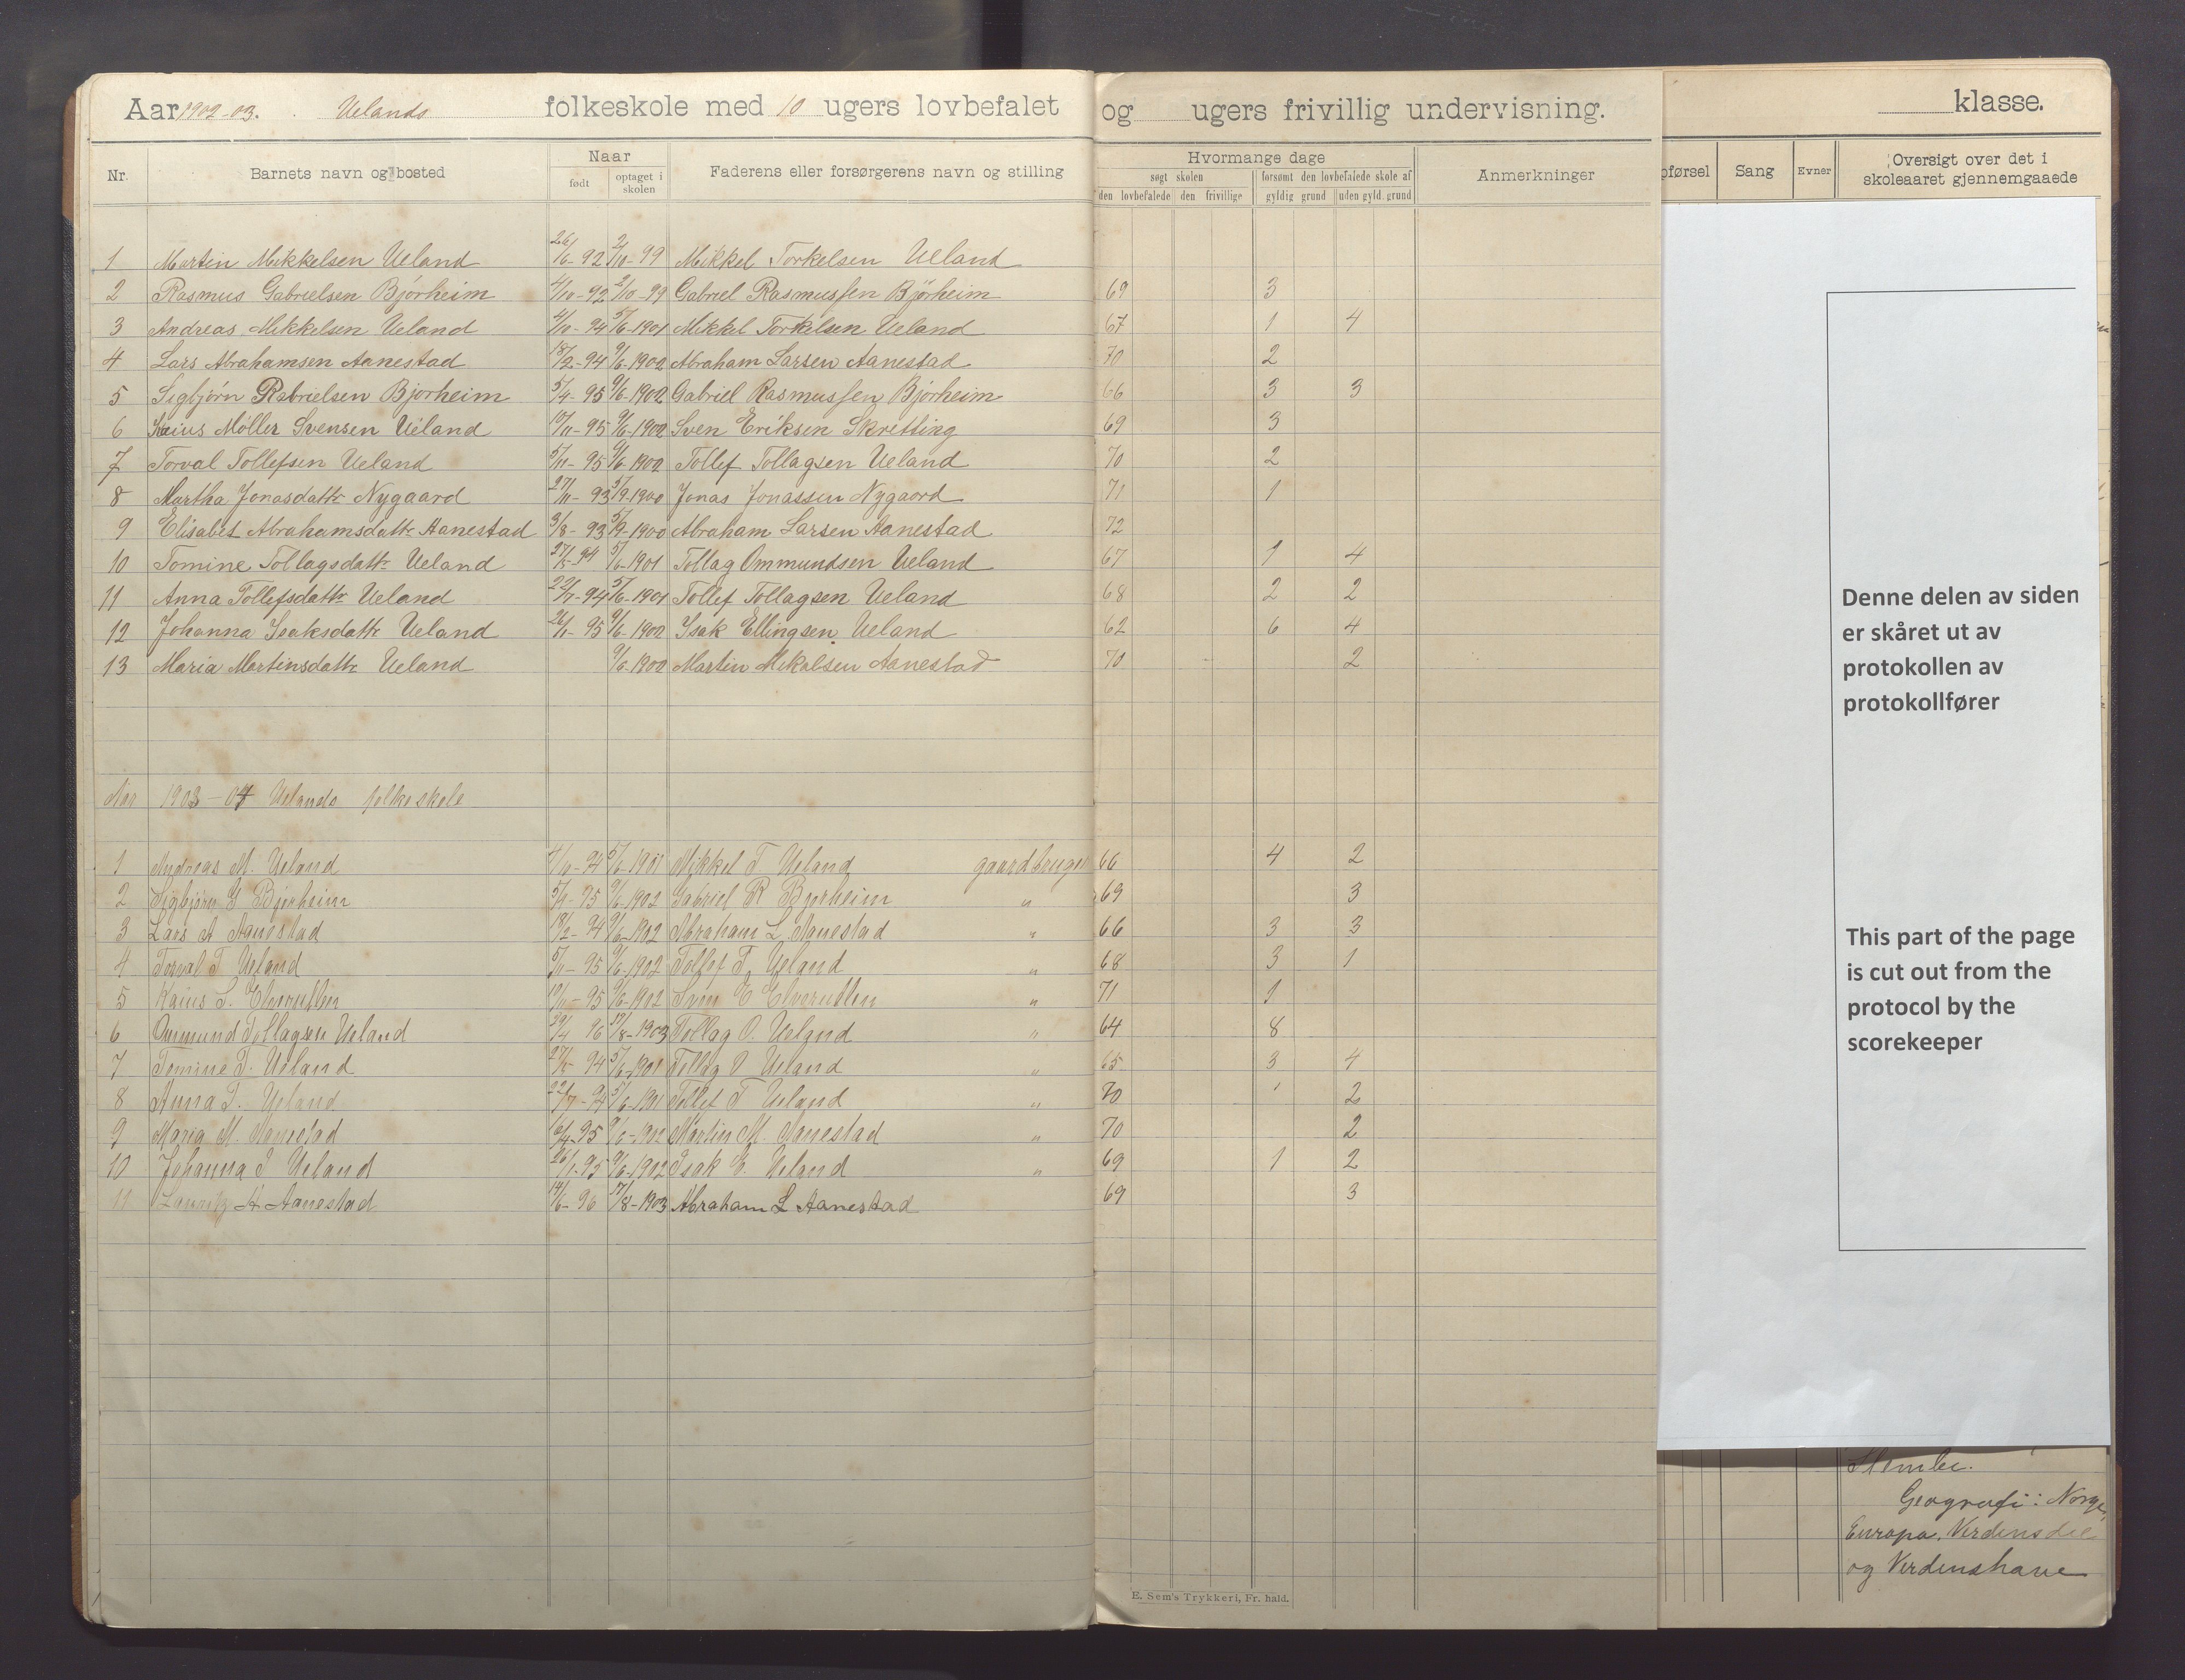 Aar 1902-03. Uelands folkeskole med 10 ugers lovbefalet og ugers frivillig undervisning. klasse.
Nr. Barnets navn og bosted Naar født optaget i skolen Faderens eller forsørgerens navn og stilling Hvormange dage søgt skolen den lovbefalede den frivillige forsømt den lovbefalede skole af gyldig grund uden gyld. grund Anmerkninger pførsel Sang Evner Oversigt over det i skoleaaret gjennemgaaede
1 Martin Mikkelsen Ueland 26/6-92 2/10-99 Mikkel Torkelsen Ueland
2 Rasmus Gabrielsen Bjørheim 4/10-92 2/10-99 Gabriel Rasmussen Bjørheim 69 3
3 Andreas Mikkelsen Ueland 4/10-94 5/6-1901 Mikkel Torkelsen Ueland 67 1 4
4 Lars Abrahamsen Aanestad 18/2-94 9/6-1902 Abraham Larsen Aanestad 70 2
5 Sigbjørn Gabrielsen Bjørheim 5/4-95 9/6-1902 Gabriel Rasmussen Bjørheim 66 3 3
6 Kaius Møller Svensen Ueland 10/11-95 9/6-1902 Sven Eriksen Skretting 69 3
7 Torval Tollefsen Ueland 5/11-95 9/6-1902 Tollef Tollagsen Ueland 70 2
8 Martha Jonasdattr Nygaard 27/11-93 5/9-1900 Jonas Jonassen Nygaard 71 1
9 Elisabet Abrahamsdattr Aanestad 3/8-93 5/9-1900 Abraham Larsen Aanestad 72
10 Tomine Tollagsdattr Ueland 27/5-94 5/6-1901 Tollag Ommundsen Ueland 67 1 4
11 Anna Tollefsdattr Ueland 22/7-94 5/6-1901 Tollef Tollagsen Ueland 68 2 2
12 Johanna Isaksdattr Ueland 26/1-95 9/6-1902 Isak Ellingsen Ueland 62 6 4
13 Maria Martinsdattr Ueland 9/6-1902 Martin Mikalsen Aanestad 70 2
Aar 1903-04 Uelands folkeskole
1 Andreas M. Ueland 4/10-94 5/6-1901 Mikkel T Ueland gaardbruger 66 4 2
2 Sigbjørn G Bjørheim 5/4-95 9/6-1902 Gabriel R Bjørheim " 69 3
3 Lars A Aanestad 18/2-94 9/6-1902 Abraham L. Aanestad " 66 3 3
4 Torval T Ueland 5/11-95 9/6-1902 Tollef T. Ueland " 68 3 1
5 Kaius S. 10/11-95 9/6-1902 Sven E " 71 1
6 Ommund Tollagsen Ueland 29/4 96 17/8-1903 Tollag O. Ueland " 64 8
7 Tomine T. Ueland 27/5 94 5/6-1901 Tollag O Ueland " 65 3 4
8 Anna T. Ueland 22/7-94 5/6-1901 Tollef T Ueland " 70 2
9 Maria M. Aanestad 16/4-95 9/6-1902 Martin M. Aanestad " 70 2
10 Johanna I Ueland 26/1-95 9/6-1902 Isak E. Ueland " 69 1 2
11 A Aanestad 14/6-96 17/8-1903 Abraham L Aanestad 69 3
Denne delen av siden
er skåret ut av
protokollen av
protokollfører
This part of the page
is cut out from the
protocol by the
scorekeeper
Geografi: Norge,
Europa, Verdensdele
og Verdenshave
E. Sem's Trykkeri, Fr. hald.